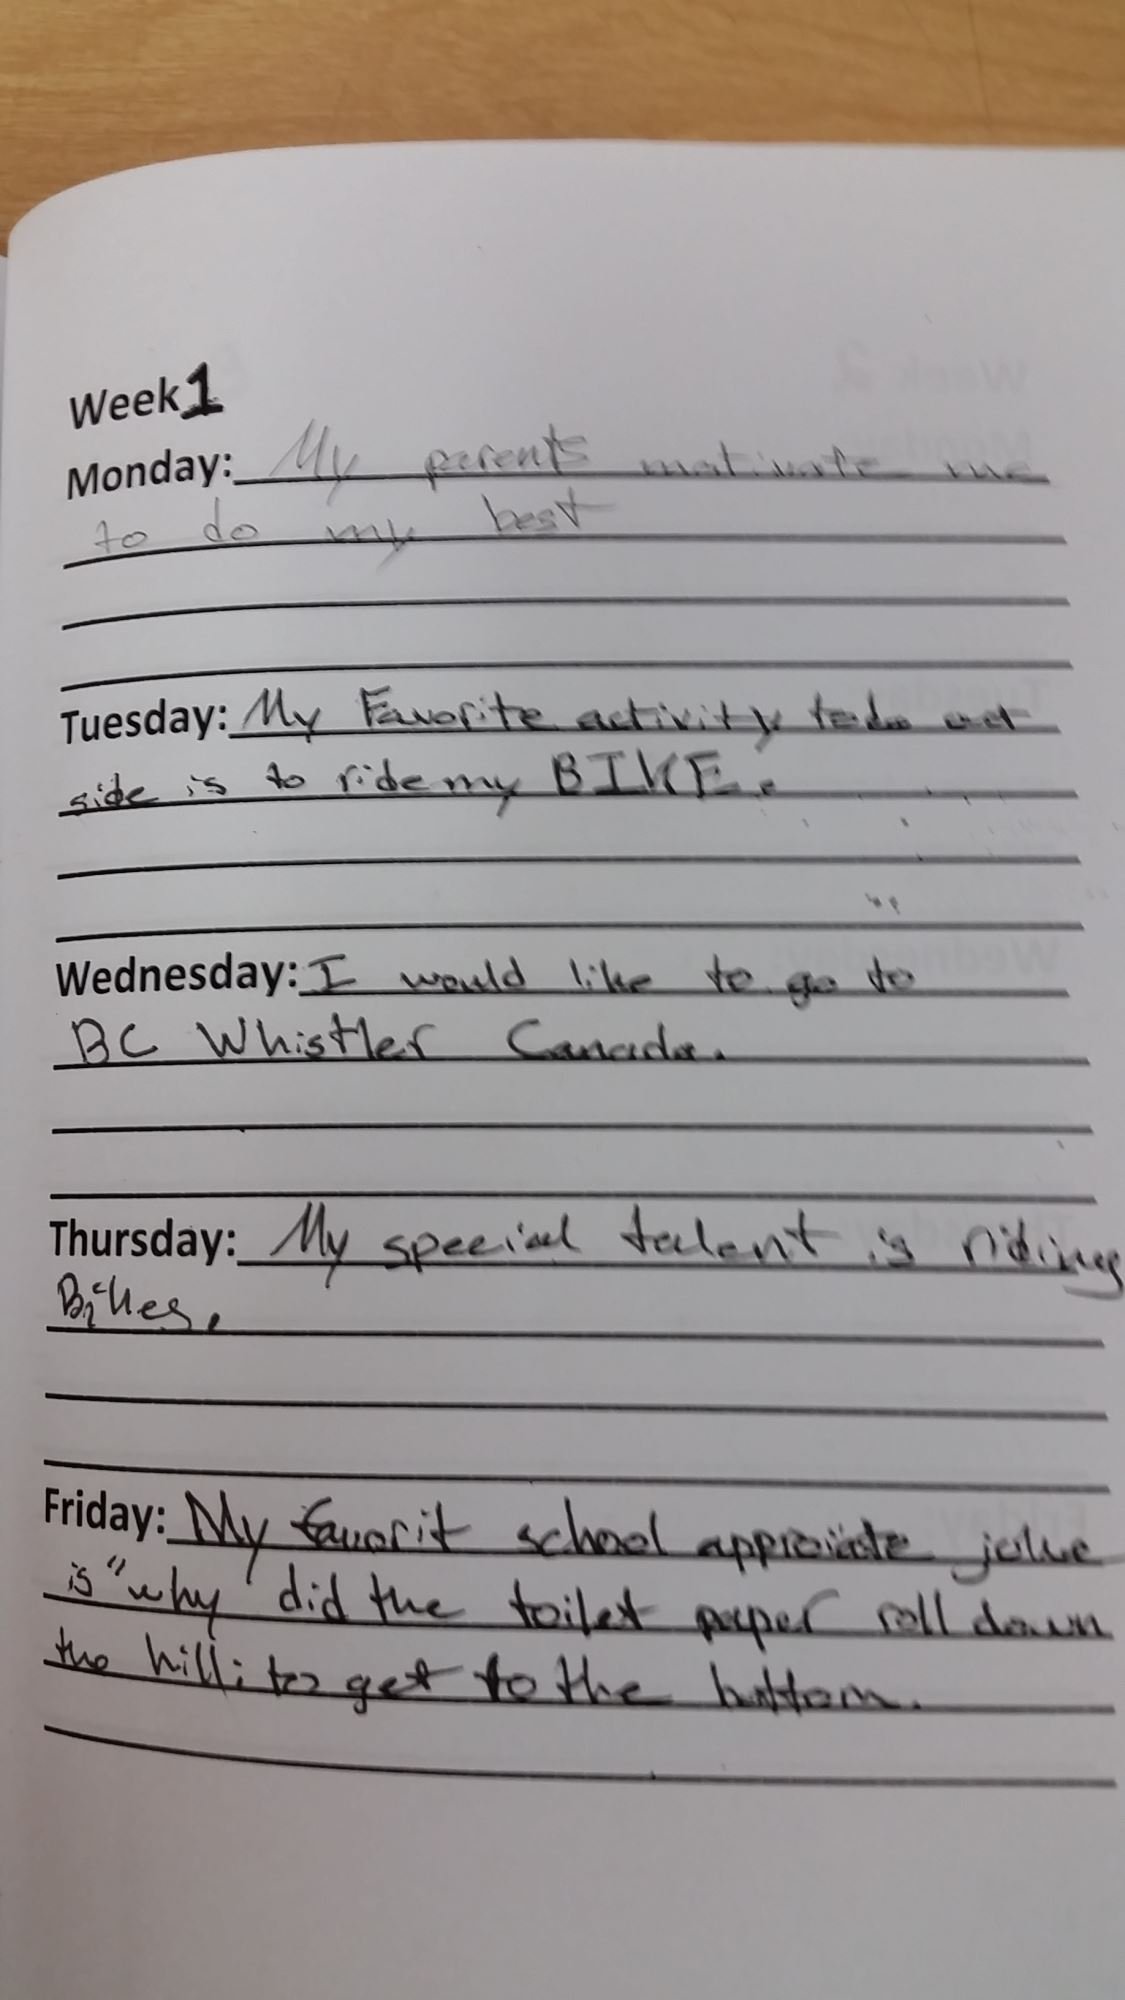 Week 1
Monday: My parents motivate me
to do my best
Tuesday: My Favorite activity to do out
side is to ride my BIKE.
Wednesday: I would like to go to
BC Whistler Canada.
Thursday: My special talent is riding
Bikes.
Friday: My favorit school approiate joke
is "why did the toilet paper roll down
the hill: to get to the bottom.